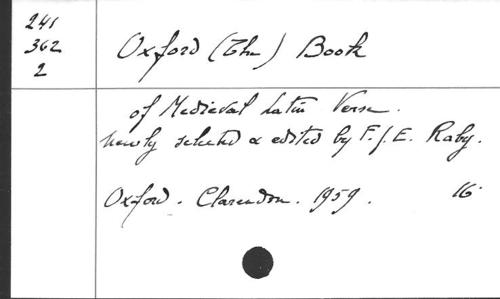 241
362
2
Oxford (The) Book
of Medieval Latin Verse.
newly selected & edited by F. J. E. Raby.
Oxford. Clarendon. 1959. 16°